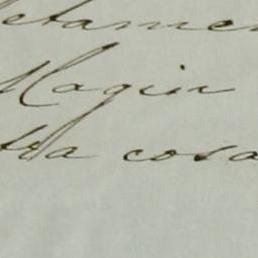 letamen
Magin
sta cosa